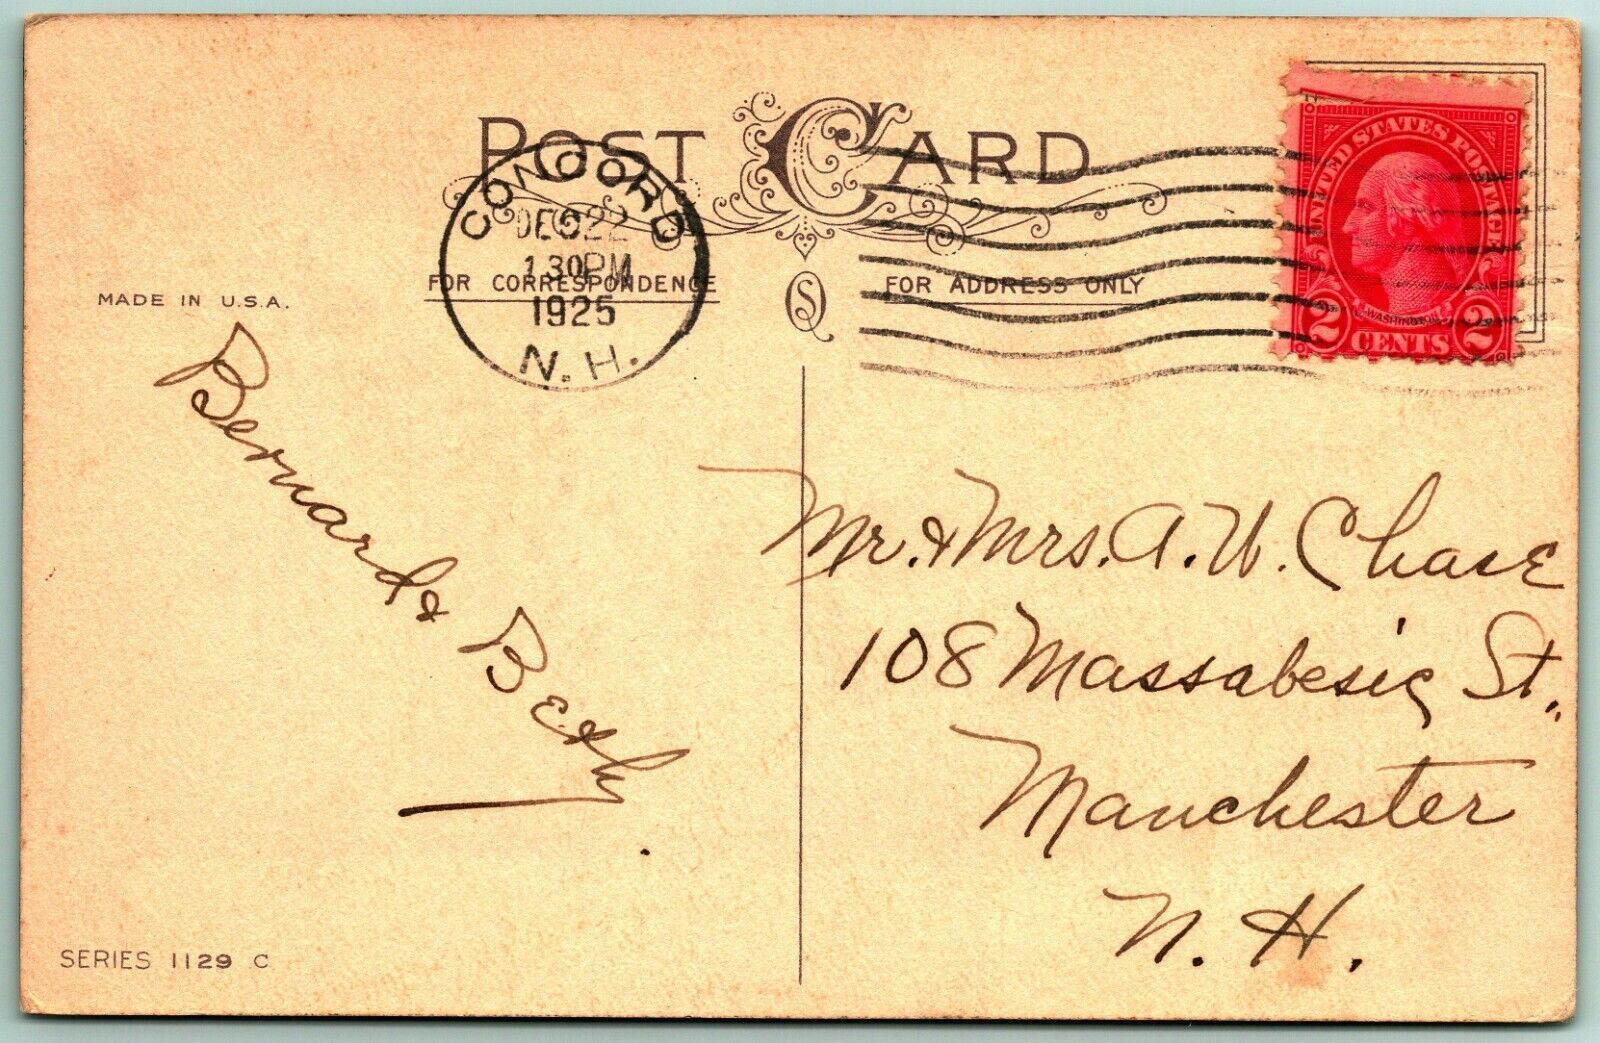 POST CARD
CONCORD
DEC 22
1 30 PM
1925
N. H.
UNITED STATES POSTAGE
WASHINGTON
2 CENTS 2
FOR CORRESPONDENCE
SQ
FOR ADDRESS ONLY
MADE IN U.S.A.
Bernard & Beth.
Mr. & Mrs. A. W. Chase
108 Massabesic St.,
Manchester
N. H.
SERIES 1129 C